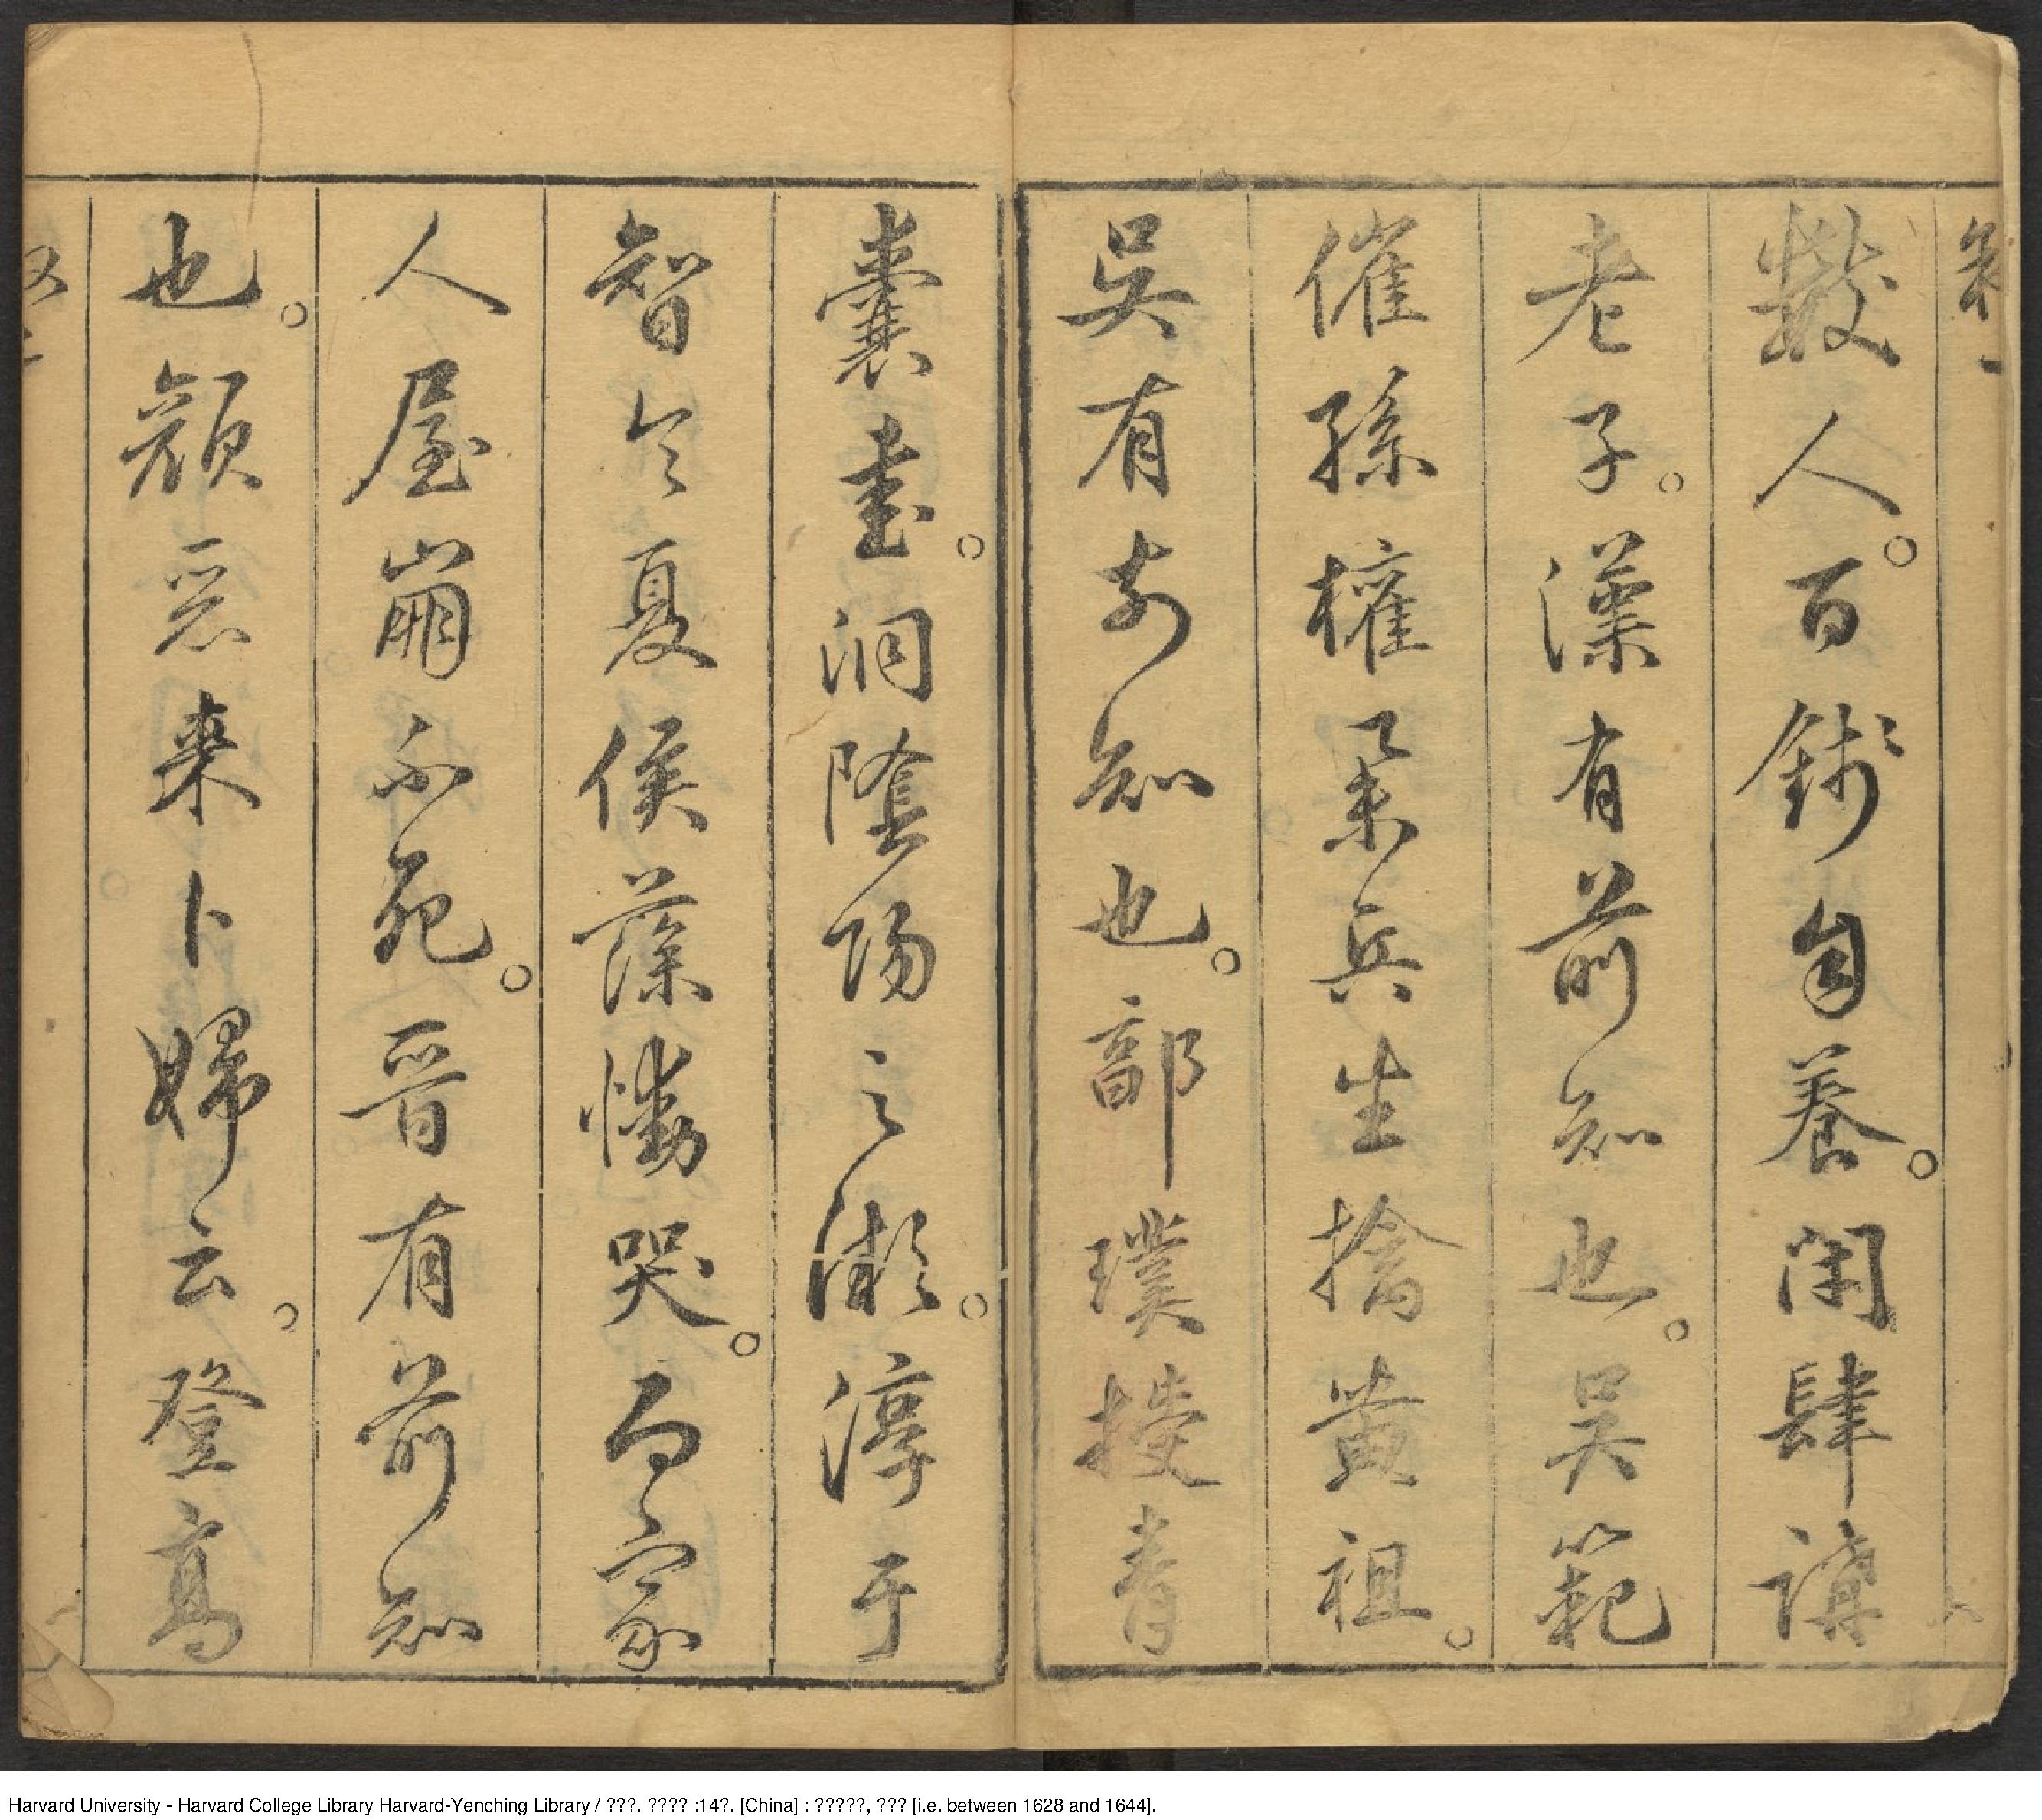 數人。百錢自養。閑肆講
老子。漢有前知也。吳範
催孫權策兵生擒黃祖。
吳有前知也。郭璞授青
囊書。洞陰陽之
。淳于
智令夏侯藻慟哭。而家
人屋崩不死。晉有前知
也。顏惡來卜婦云。登高
Harvard University - Harvard College Library Harvard-Yenching Library / ???. ???? :14?. [China] : ?????, ??? [i.e. between 1628 and 1644].